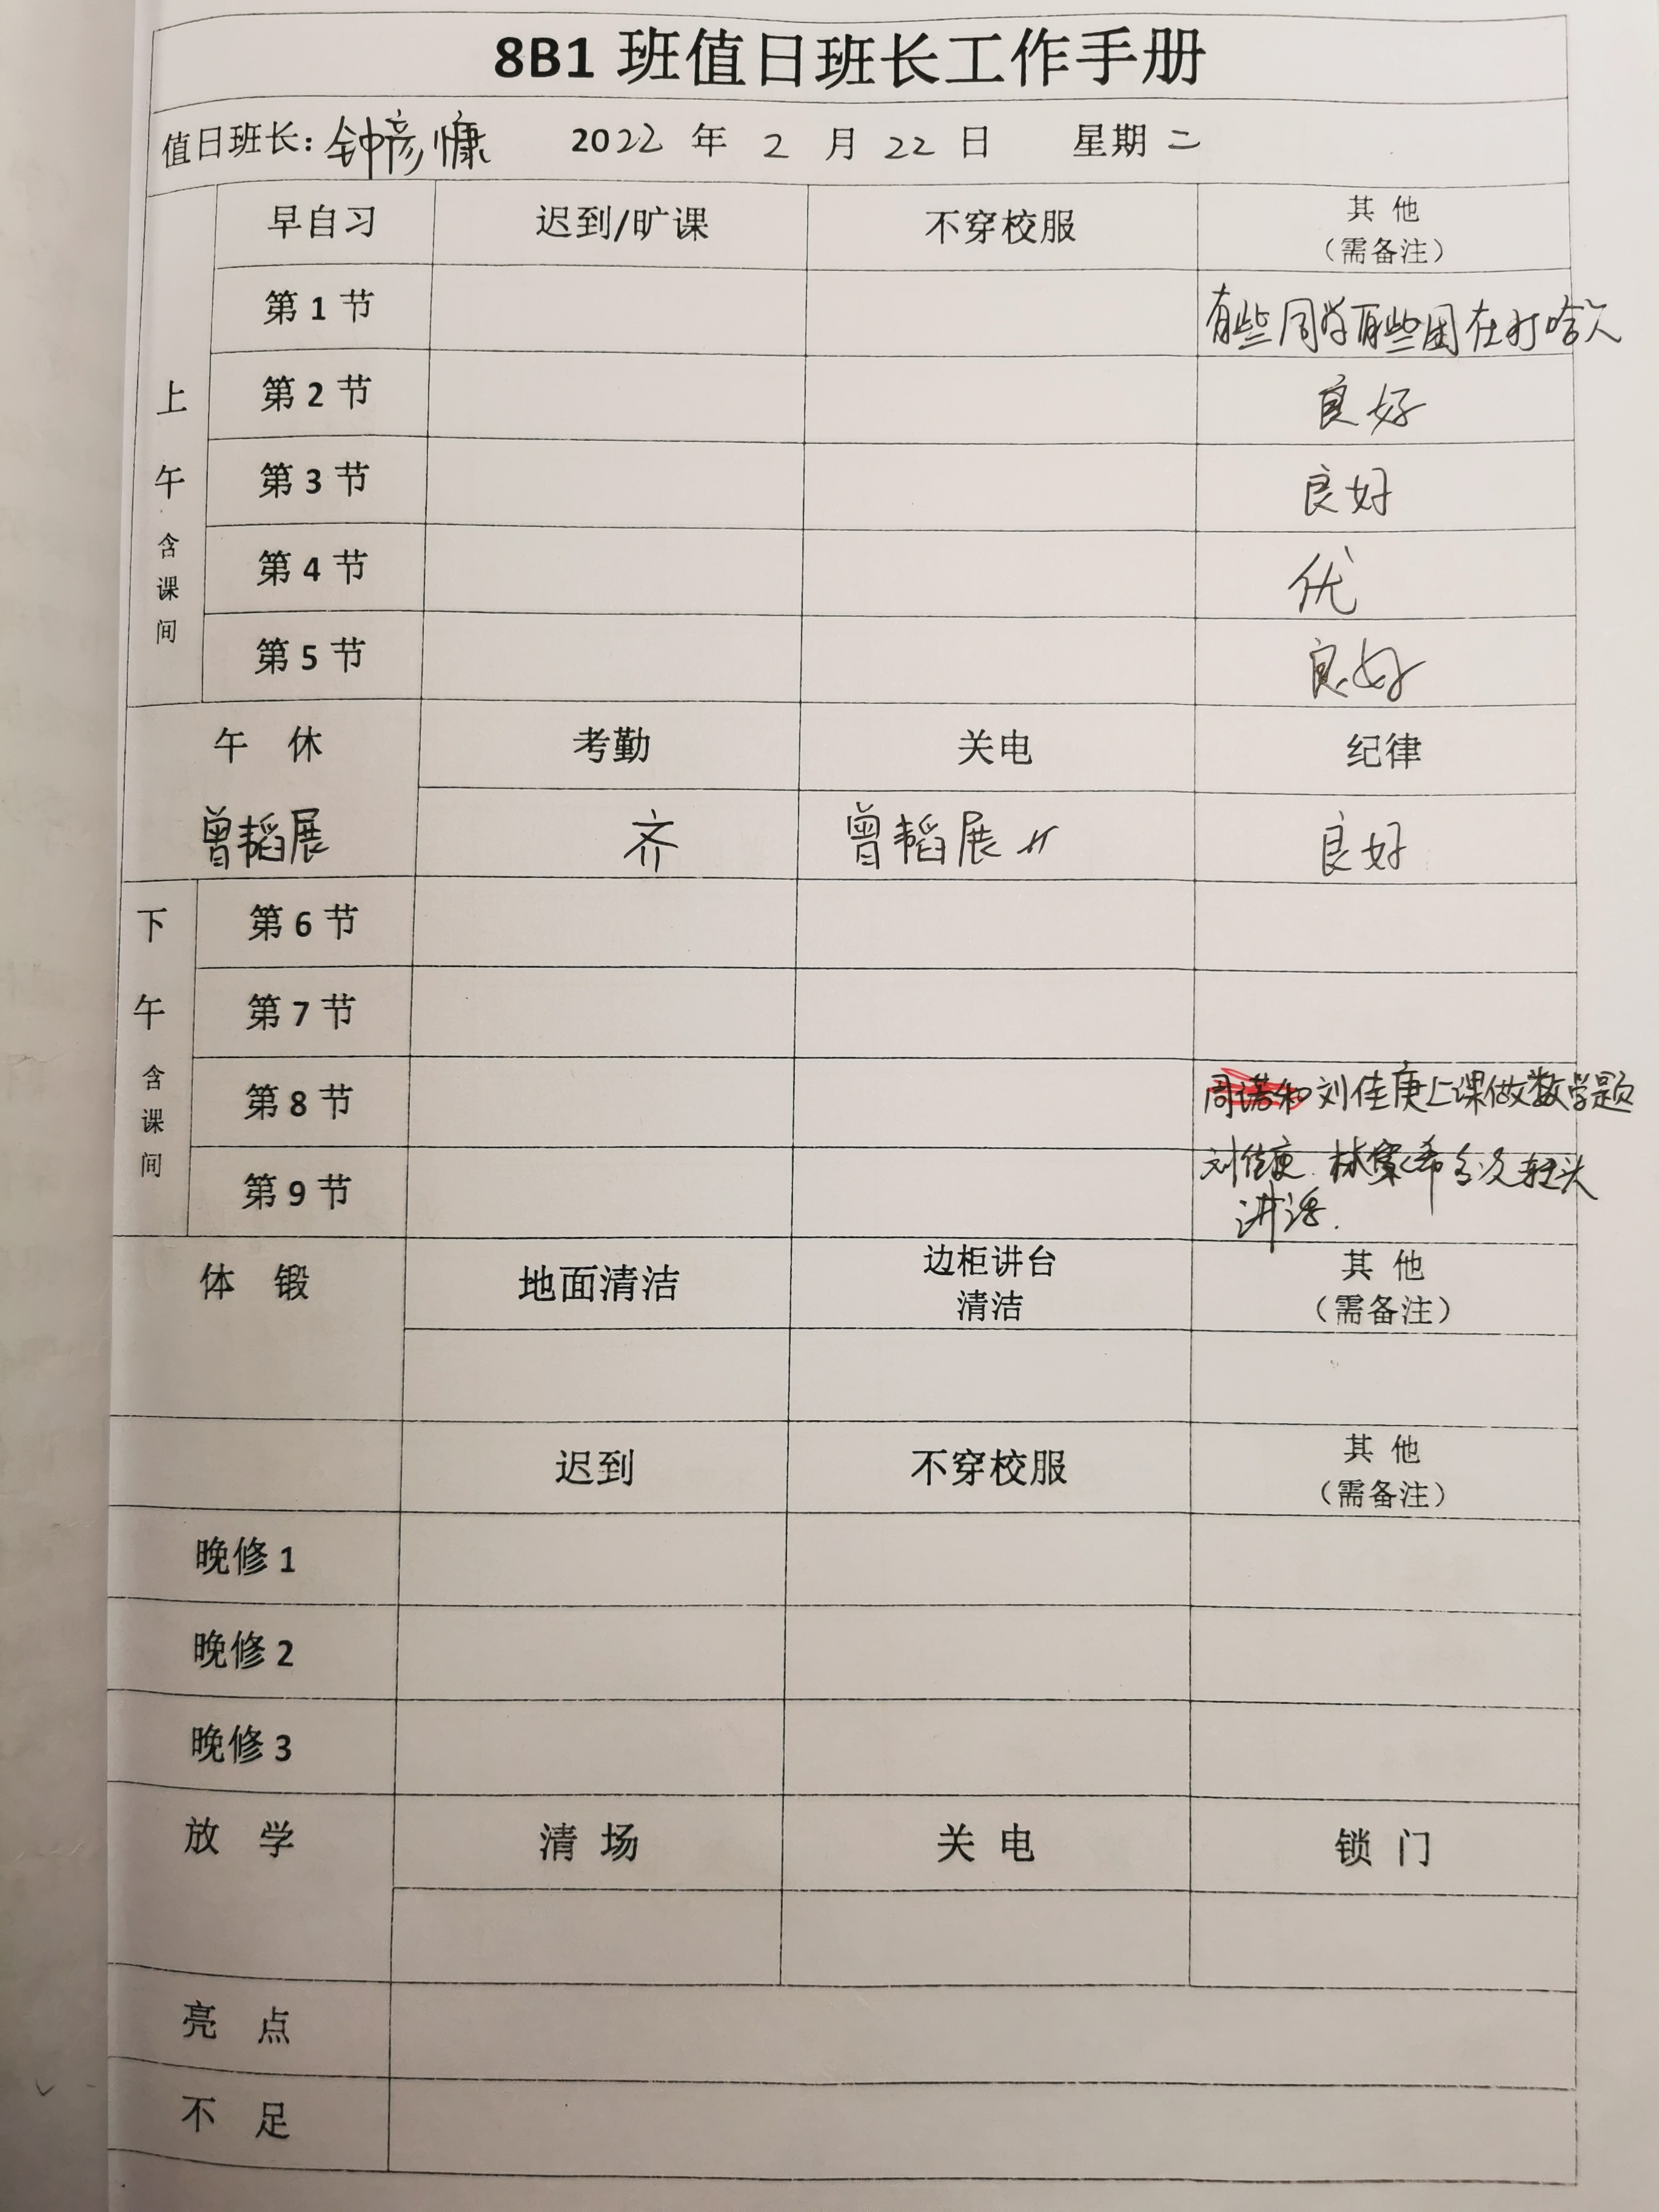 8B1 班值日班长工作手册
值日班长：钟彦慷 2022 年 2 月 22 日 星期 二
早自习 迟到/旷课 不穿校服 其 他
（需备注）
上午 含课间
第 1 节 有些同学有些困在打哈欠
第 2 节 良好
第 3 节 良好
第 4 节 优
第 5 节 良好
午 休 考勤 关电 纪律
曾韬展 齐 曾韬展 良好
下午 含课间
第 6 节
第 7 节
第 8 节 刘佳庚上课做数学题
第 9 节 刘佳庚 林 希多次转头
讲话.
体 锻 地面清洁 边柜讲台
清洁 其 他
（需备注）
迟到 不穿校服 其 他
（需备注）
晚修 1
晚修 2
晚修 3
放 学 清 场 关 电 锁 门
亮 点
不 足